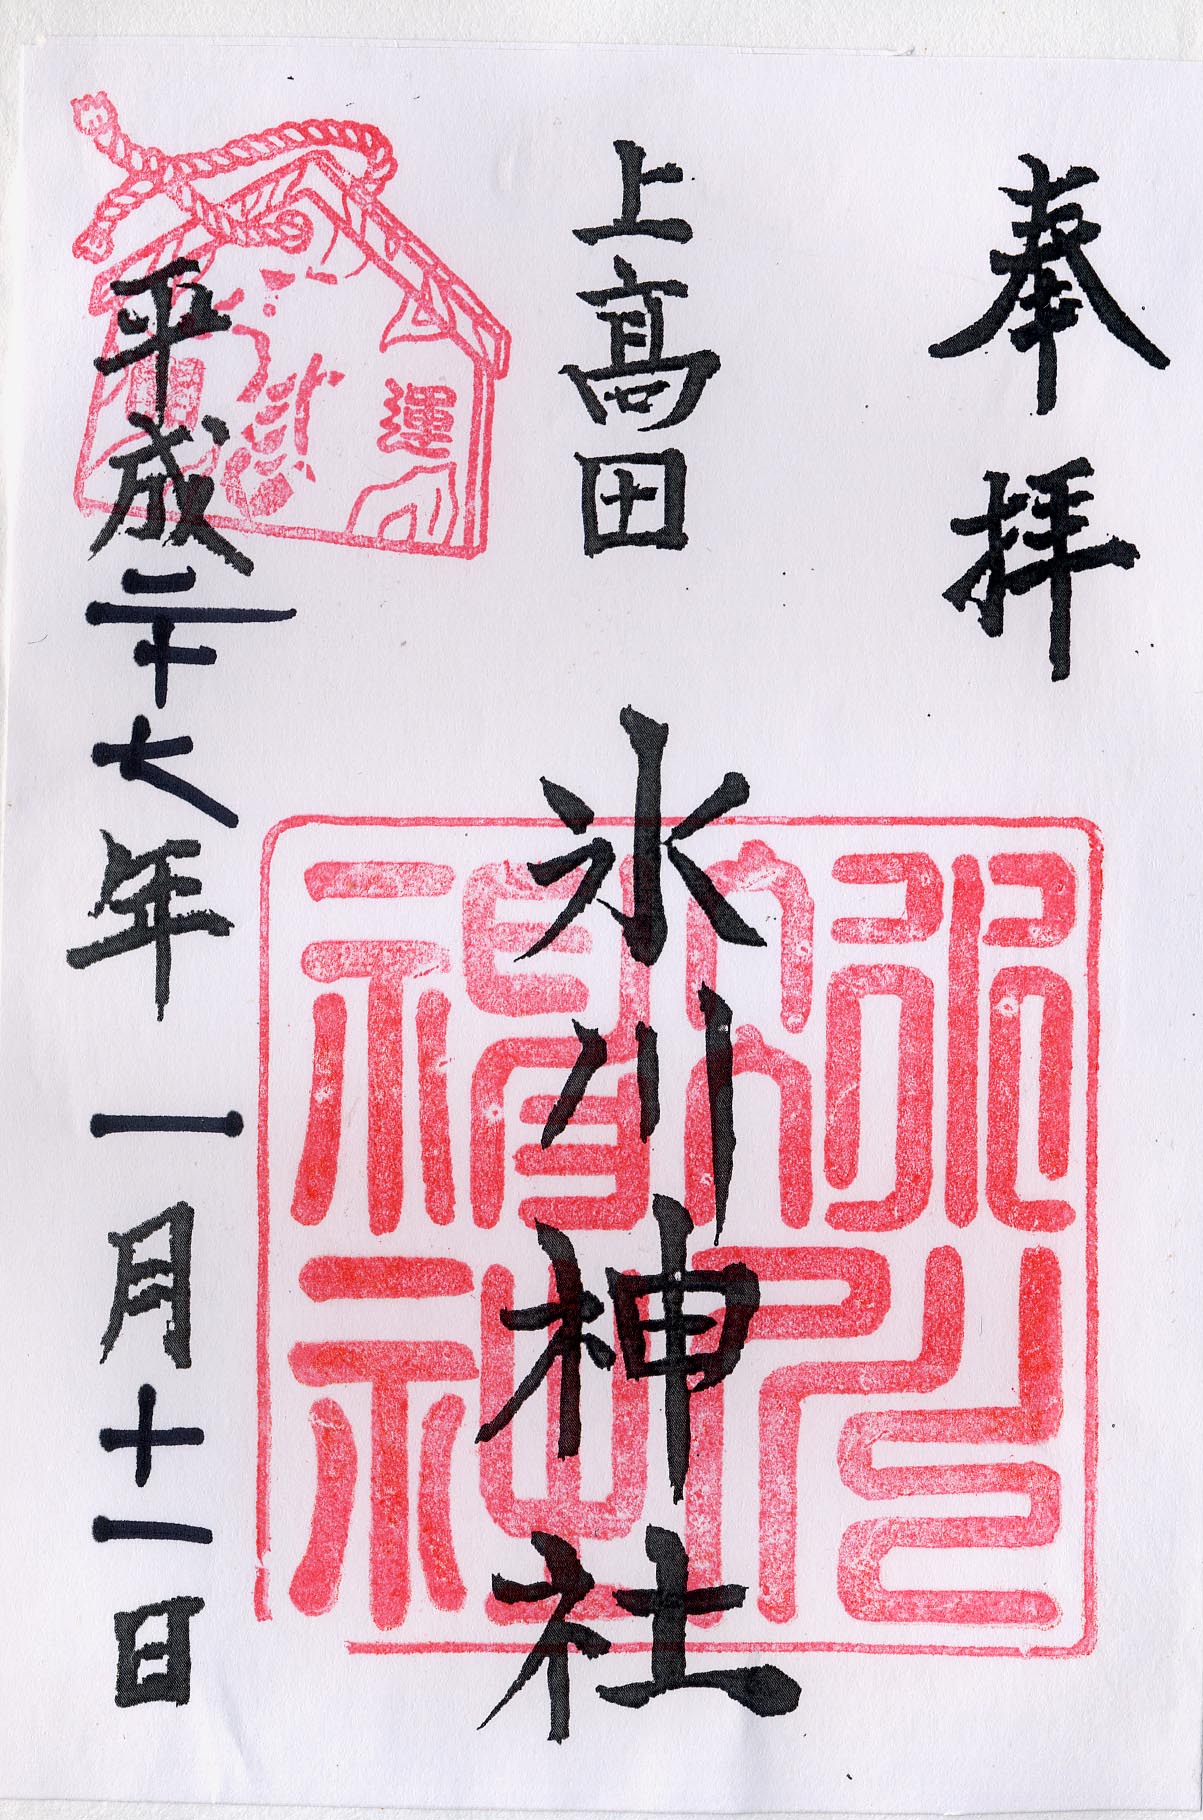 奉拝
上高田
氷川神社
平成二十七年一月十一日
運